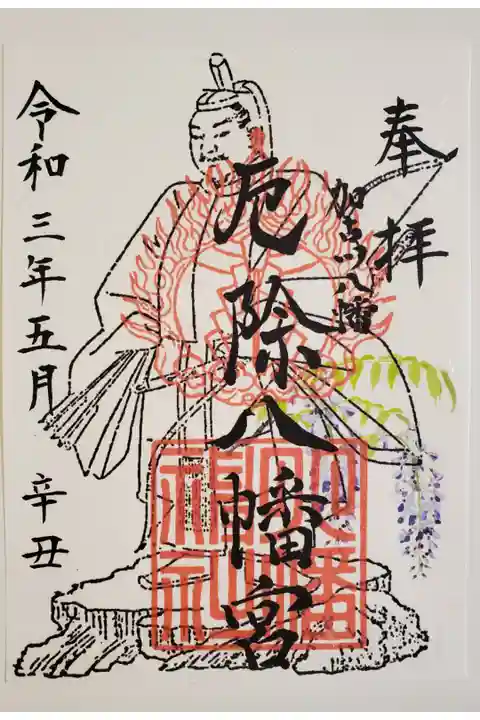 奉拝
加古川八幡
厄除八幡宮
令和三年五月 辛丑